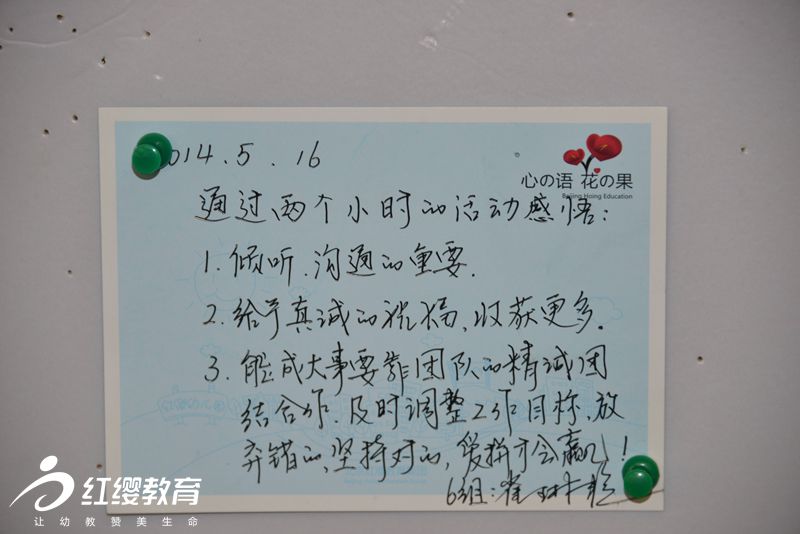 2014.5.16
心の语 花の果
Beijing Hoing Education
通过两个小时的活动感悟：
1. 倾听、沟通的重要.
2. 给予真诚的祝福、收获更多.
3. 能成大事要靠团队的精诚团
结合作.及时调整工作目标、放
弃错的、坚持对的，爱拼才会赢！
6组：崔
红缨教育
让幼教赞美生命